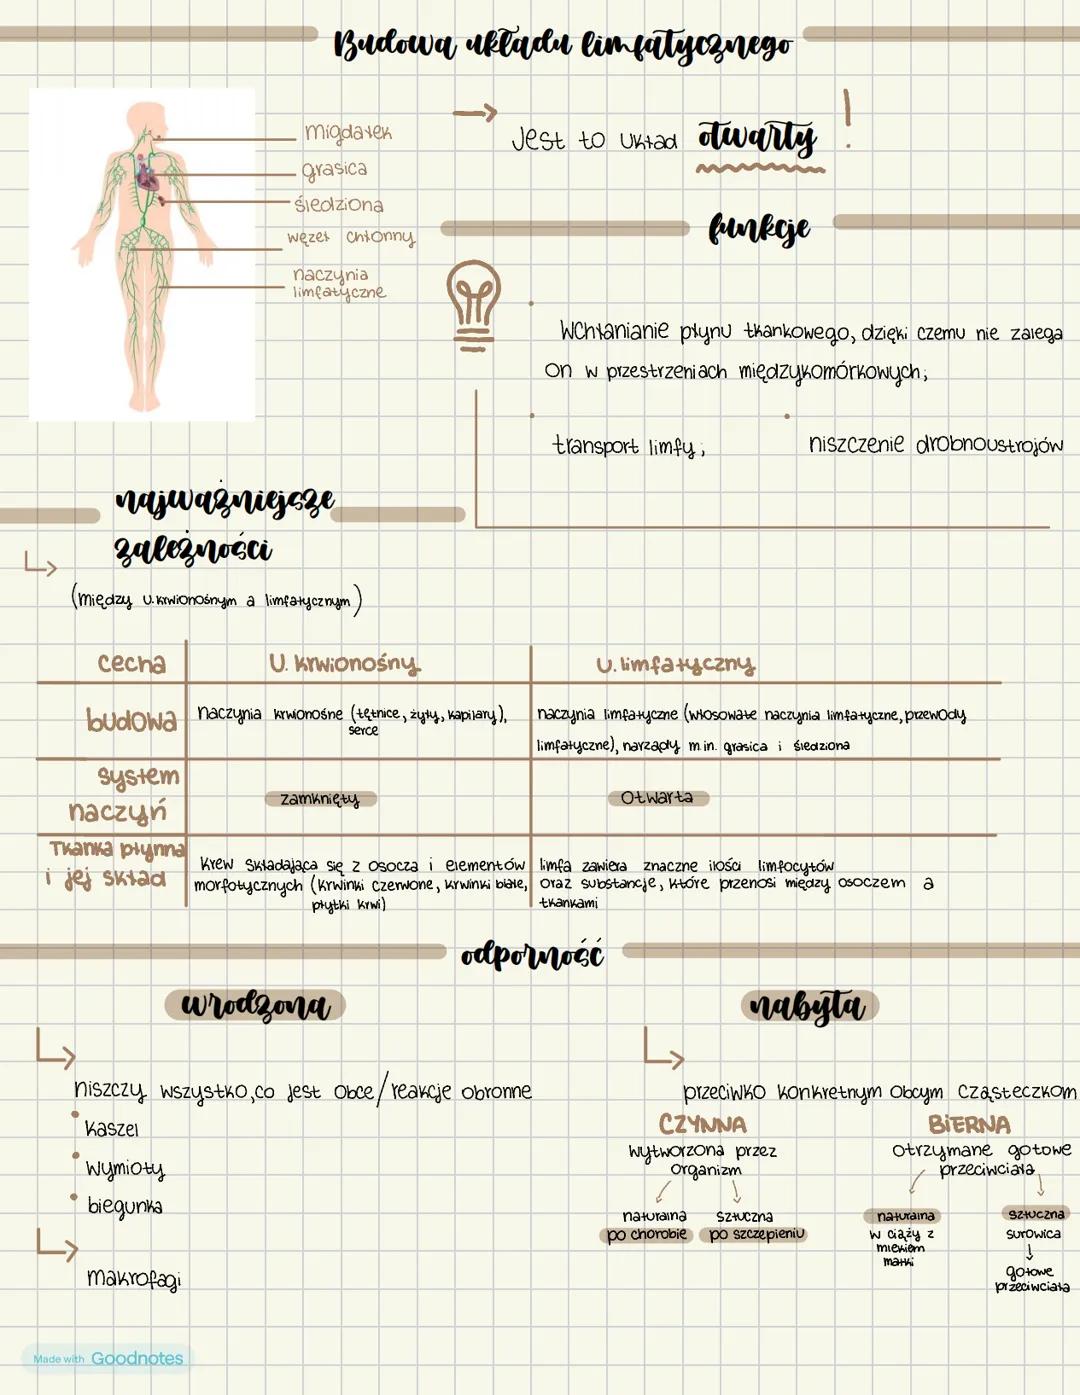 Budowa układu limfatycznego
migdałek
grasica
śledziona
węzeł chłonny
naczynia
limfatyczne
Jest to układ otwarty !
funkcje
Wchłanianie płynu tkankowego, dzięki czemu nie zalega
on w przestrzeniach międzykomórkowych;
transport limfy;
niszczenie drobnoustrojów
najważniejsze
zależności
(między u. krwionośnym a limfatycznym)
cecha
U. krwionośny
U. limfatyczny
budowa
Naczynia krwionośne (tętnice, żyły, kapilary),
serce
naczynia limfatyczne (włosowate naczynia limfatyczne, przewody
limfatyczne), narządy m.in. grasica i śledziona
system
naczyń
zamknięty
Otwarta
Tkanka płynna
i jej skład
Krew składająca się z osocza i elementów
morfotycznych (krwinki czerwone, krwinki białe,
płytki krwi)
limfa zawiera znaczne ilości limfocytów
oraz substancje, które przenosi między osoczem a
tkankami
odporność
wrodzona
nabyta
niszczy wszystko, co jest obce/reakcje obronne
kaszel
wymioty
biegunka
makrofagi
przeciwko konkretnym obcym cząsteczkom
CZYNNA
wytworzona przez
organizm
naturalna
po chorobie
sztuczna
po szczepieniu
BIERNA
otrzymane gotowe
przeciwciała
naturalna
w ciąży z
mlekiem
matki
sztuczna
surowica
gotowe
przeciwciała
Made with Goodnotes